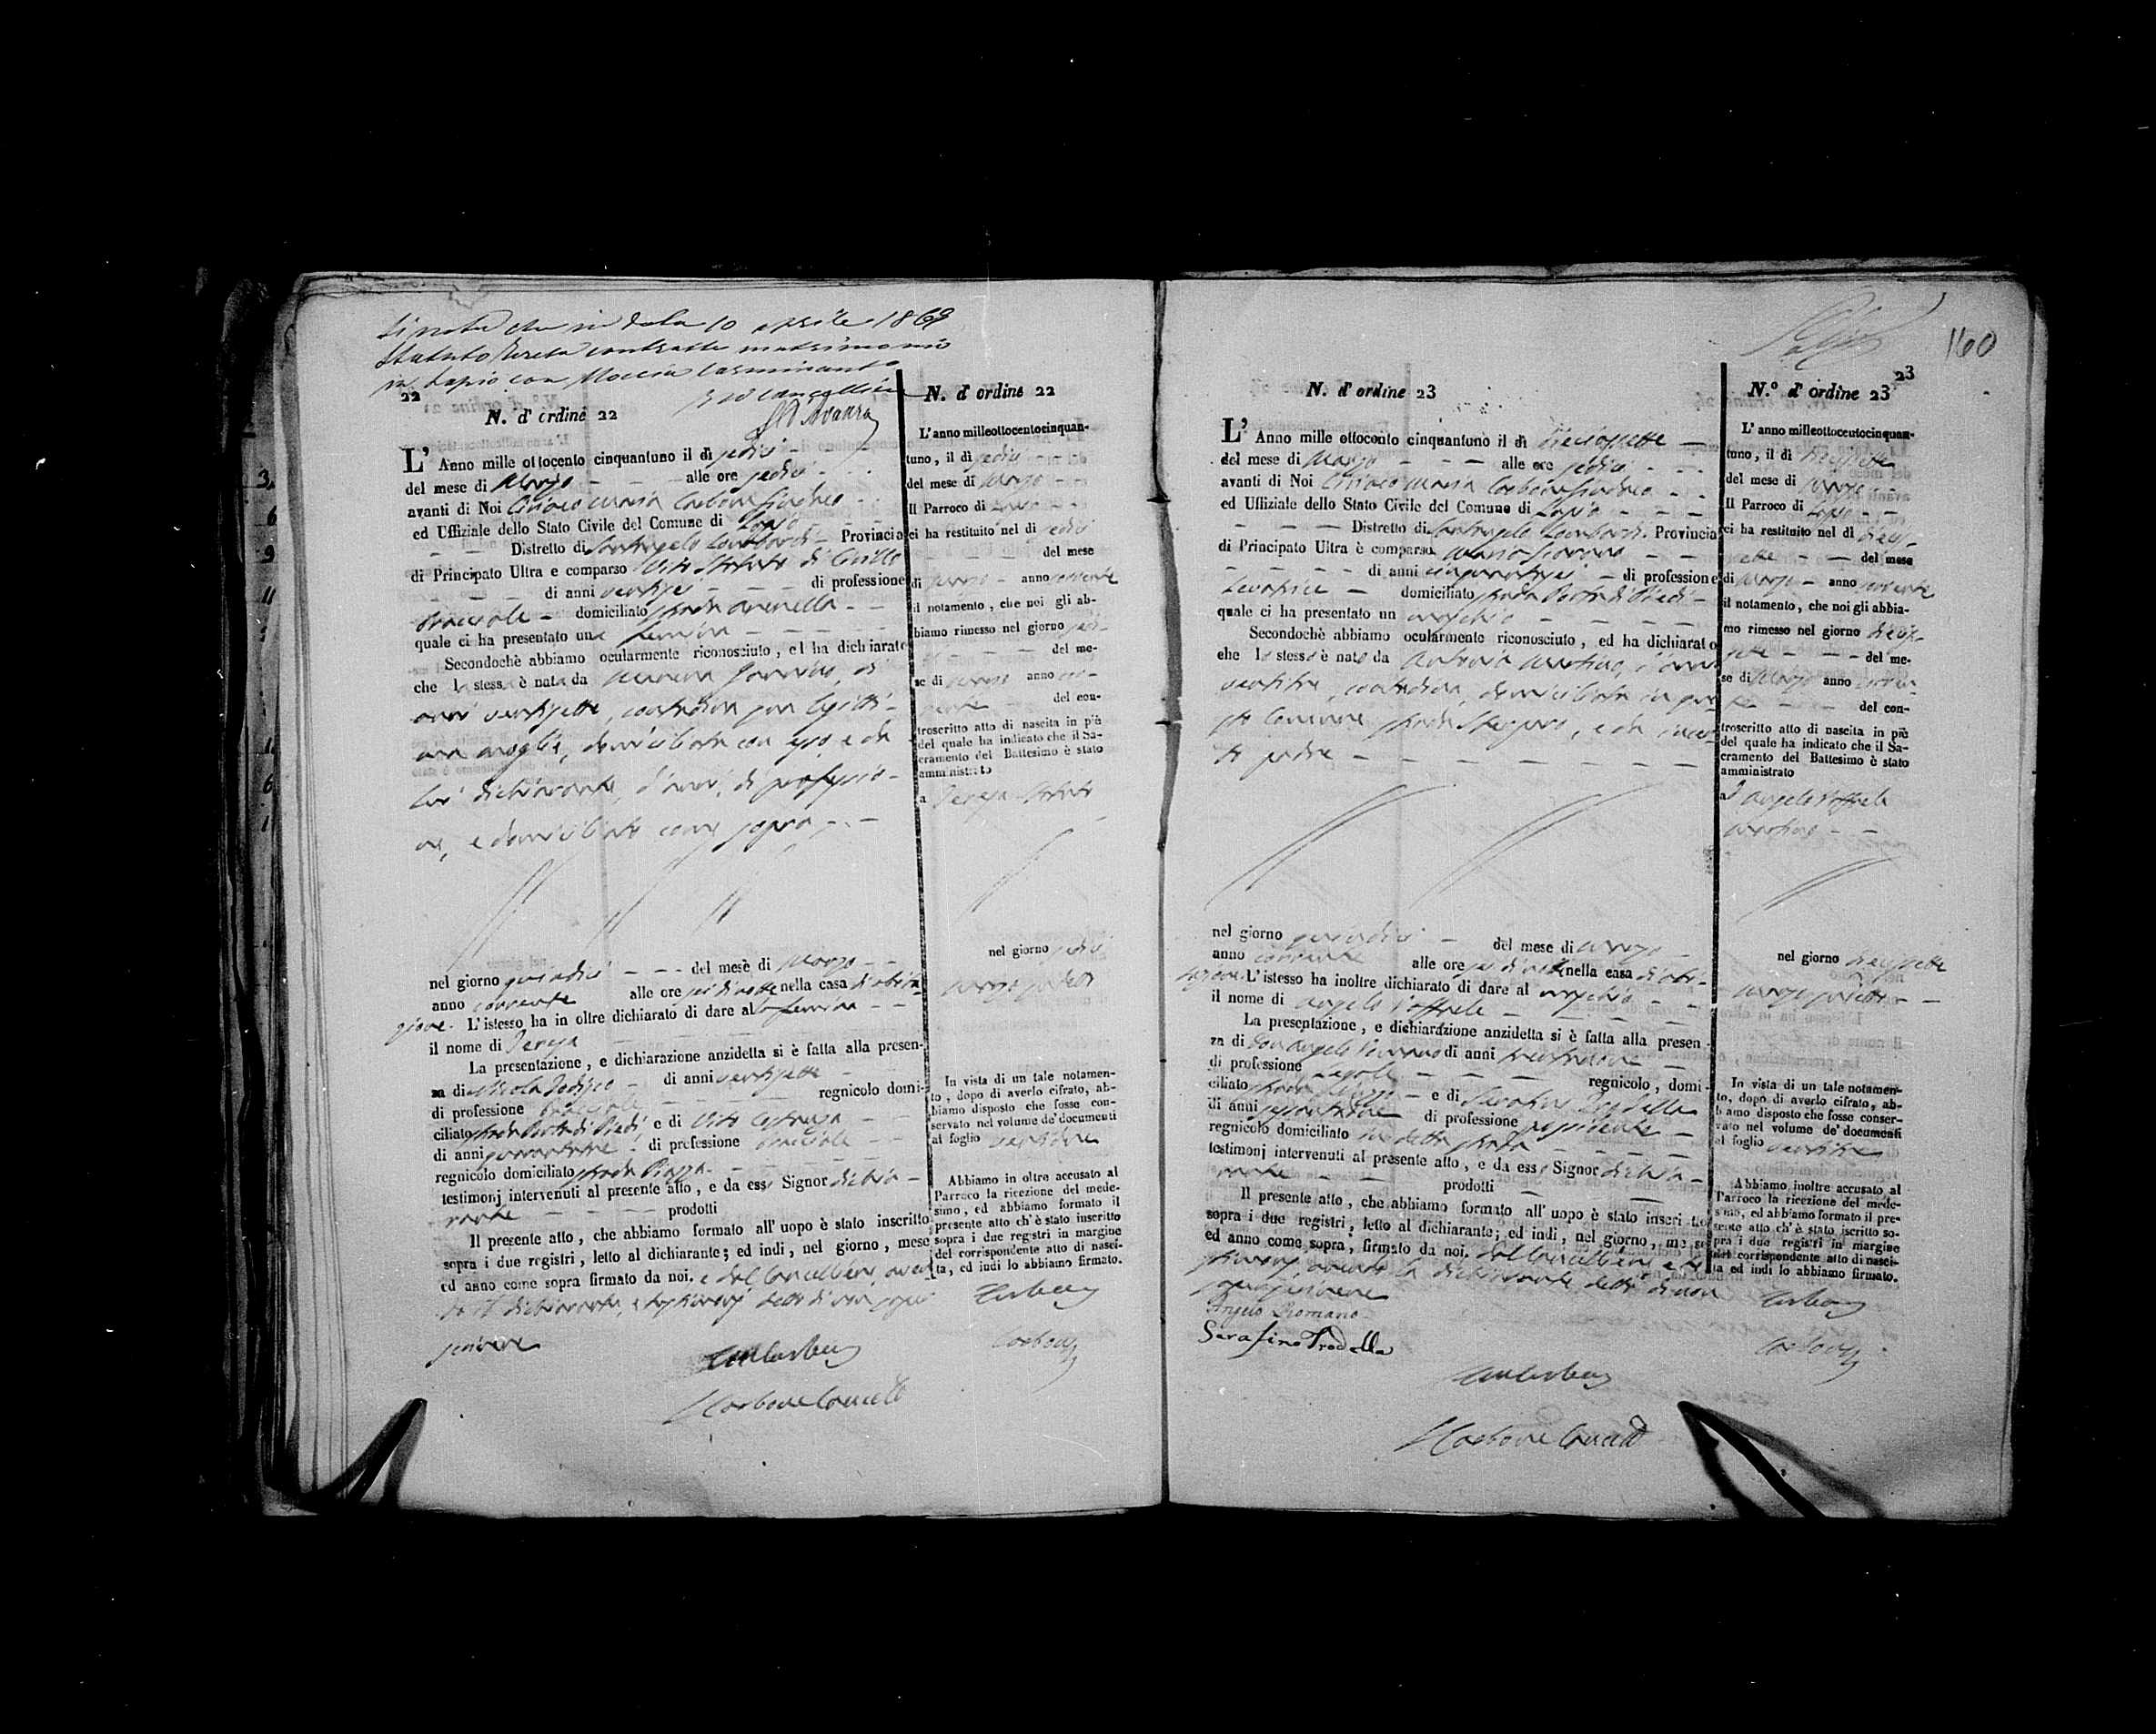 Si nota che in data 10 aprile 1869
Statuto Teresa contratto matrimonio
in Lapio con Moccia Carminanto
Il Cancelliere
22
N. d' ordine 22
L' Anno mille ottocento cinquantuno il di sedici
del mese di Marzo alle ore sedici
avanti di Noi Ciriaco Maria Carbone Sindaco
ed Uffiziale dello Stato Civile del Comune di Lapio
Distretto di Santangelo Lombardi Provincia
di Principato Ultra e comparso Vito Statuto di Cirillo
di anni ventisei di professione
bracciale domiciliato strada
quale ci ha presentato una femina
Secondochè abbiamo ocularmente riconosciuto, ed ha dichiarato
che la stessa è nata da di
anni ventisette, contadina sua legitti-
ma moglie, domiciliata con esso e da
lui dichiarante, d'anni, di professio-
ne, e domiciliato come sopra
nel giorno quindici del mese di Marzo
anno corrente alle ore sei di notte nella casa di abita-
zione. L'istesso ha in oltre dichiarato di dare alla femina
il nome di Teresa
La presentazione, e dichiarazione anzidetta si è fatta alla presen-
za di Nicola di anni ventisette
di professione bracciale regnicolo domi-
ciliato strada Porta di Piedi e di Vito
di anni di professione bracciale
regnicolo domiciliato strada Piazza
testimonj intervenuti al presente atto, e da esso Signor dichia-
rante prodotti
Il presente atto, che abbiamo formato all' uopo è stato inscritto
sopra i due registri, letto al dichiarante; ed indi, nel giorno, mese
ed anno come sopra firmato da noi. e dal Cancelliere, aven-
do il dichiarante, e testimonj detto di non sapere
scrivere
Carbone Cancell
N. d' ordine 22
L'anno milleottocentocinquan-
tuno, il di sedici
del mese di Marzo
Il Parroco di Lapio
ci ha restituito nel di sedici
del mese
di Marzo anno corrente
il notamento, che noi gli ab-
biamo rimesso nel giorno sedi-
ci del me-
se di Marzo anno cor-
rente del con-
troscritto atto di nascita in piè
del quale ha indicato che il Sa-
cramento del Battesimo è stato
amministrato
a Teresa Statuto
nel giorno sedici
Marzo suddetto
In vista di un tale notamen-
to, dopo di averlo cifrato, ab-
biamo disposto che fosse con-
servato nel volume de'documenti
al foglio ventidue
Abbiamo in oltre accusato al
Parroco la ricezione del mede-
simo, ed abbiamo formato il
presente atto ch'è stato inscritto
sopra i due registri in margine
del corrispondente atto di nasci-
ta, ed indi lo abbiamo firmato.
Carbone
160
N. d' ordine 23
L' Anno mille ottocento cinquantuno il di diciassette
del mese di Marzo alle ore sedici
avanti di Noi Ciriaco Maria Carbone Sindaco
ed Uffiziale dello Stato Civile del Comune di Lapio
Distretto di Santangelo Lombardi Provincia
di Principato Ultra è comparsa Maria
di anni cinquantasei di professione
Levatrice domiciliato strada Porta di Piedi
quale ci ha presentato un maschio
Secondochè abbiamo ocularmente riconosciuto, ed ha dichiarato
che lo stesso è nato da Antonia Martino, d'anni
ventitre, contadina, domiciliata in que-
sto Comune strada , e da incer-
to padre
nel giorno quindici del mese di Marzo
anno corrente alle ore sei di notte nella casa di abi-
tazione. L'istesso ha inoltre dichiarato di dare al maschio
il nome di Angelo Raffaele
La presentazione, e dichiarazione anzidetta si è fatta alla presen-
za di Don Angelo Romano di anni
di professione Legale regnicolo, domi-
ciliato strada e di Serafino Prodella
di anni di professione possidente
regnicolo domiciliato in detta strada
testimonj intervenuti al presente atto, e da esso Signor dichia-
rante prodotti
Il presente atto, che abbiamo formato all' uopo è stato inscritto
sopra i due registri, letto al dichiarante; ed indi, nel giorno, mese
ed anno come sopra, firmato da noi. dal Cancelliere e te-
stimonj, avendo la dichiarante detto di non
saper scrivere
Angelo Romano
Serafino Prodella
Carbone Cancell
23
N.° d' ordine 23
L'anno milleottocentocinquan-
tuno, il di diciassette
del mese di Marzo
Il Parroco di Lapio
ci ha restituito nel di dicias-
sette del mese
di Marzo anno corrente
il notamento, che noi gli abbia-
mo rimesso nel giorno dicias-
sette del me-
se di Marzo anno corren-
te del con-
troscritto atto di nascita in piè
del quale ha indicato che il Sa-
cramento del Battesimo è stato
amministrato
a Angelo Raffaele
Martino
nel giorno diciassette
Marzo suddetto
In vista di un tale notamen-
to, dopo di averlo cifrato, ab-
biamo disposto che fosse conser-
vato nel volume de' documenti
al foglio ventitre
Abbiamo inoltre accusato al
Parroco la ricezione del mede-
simo, ed abbiamo formato il pre-
sente atto ch'è stato iscritto so-
pra i due registri in margine
del corrispondente atto di nasci-
ta ed indi lo abbiamo firmato.
Carbone